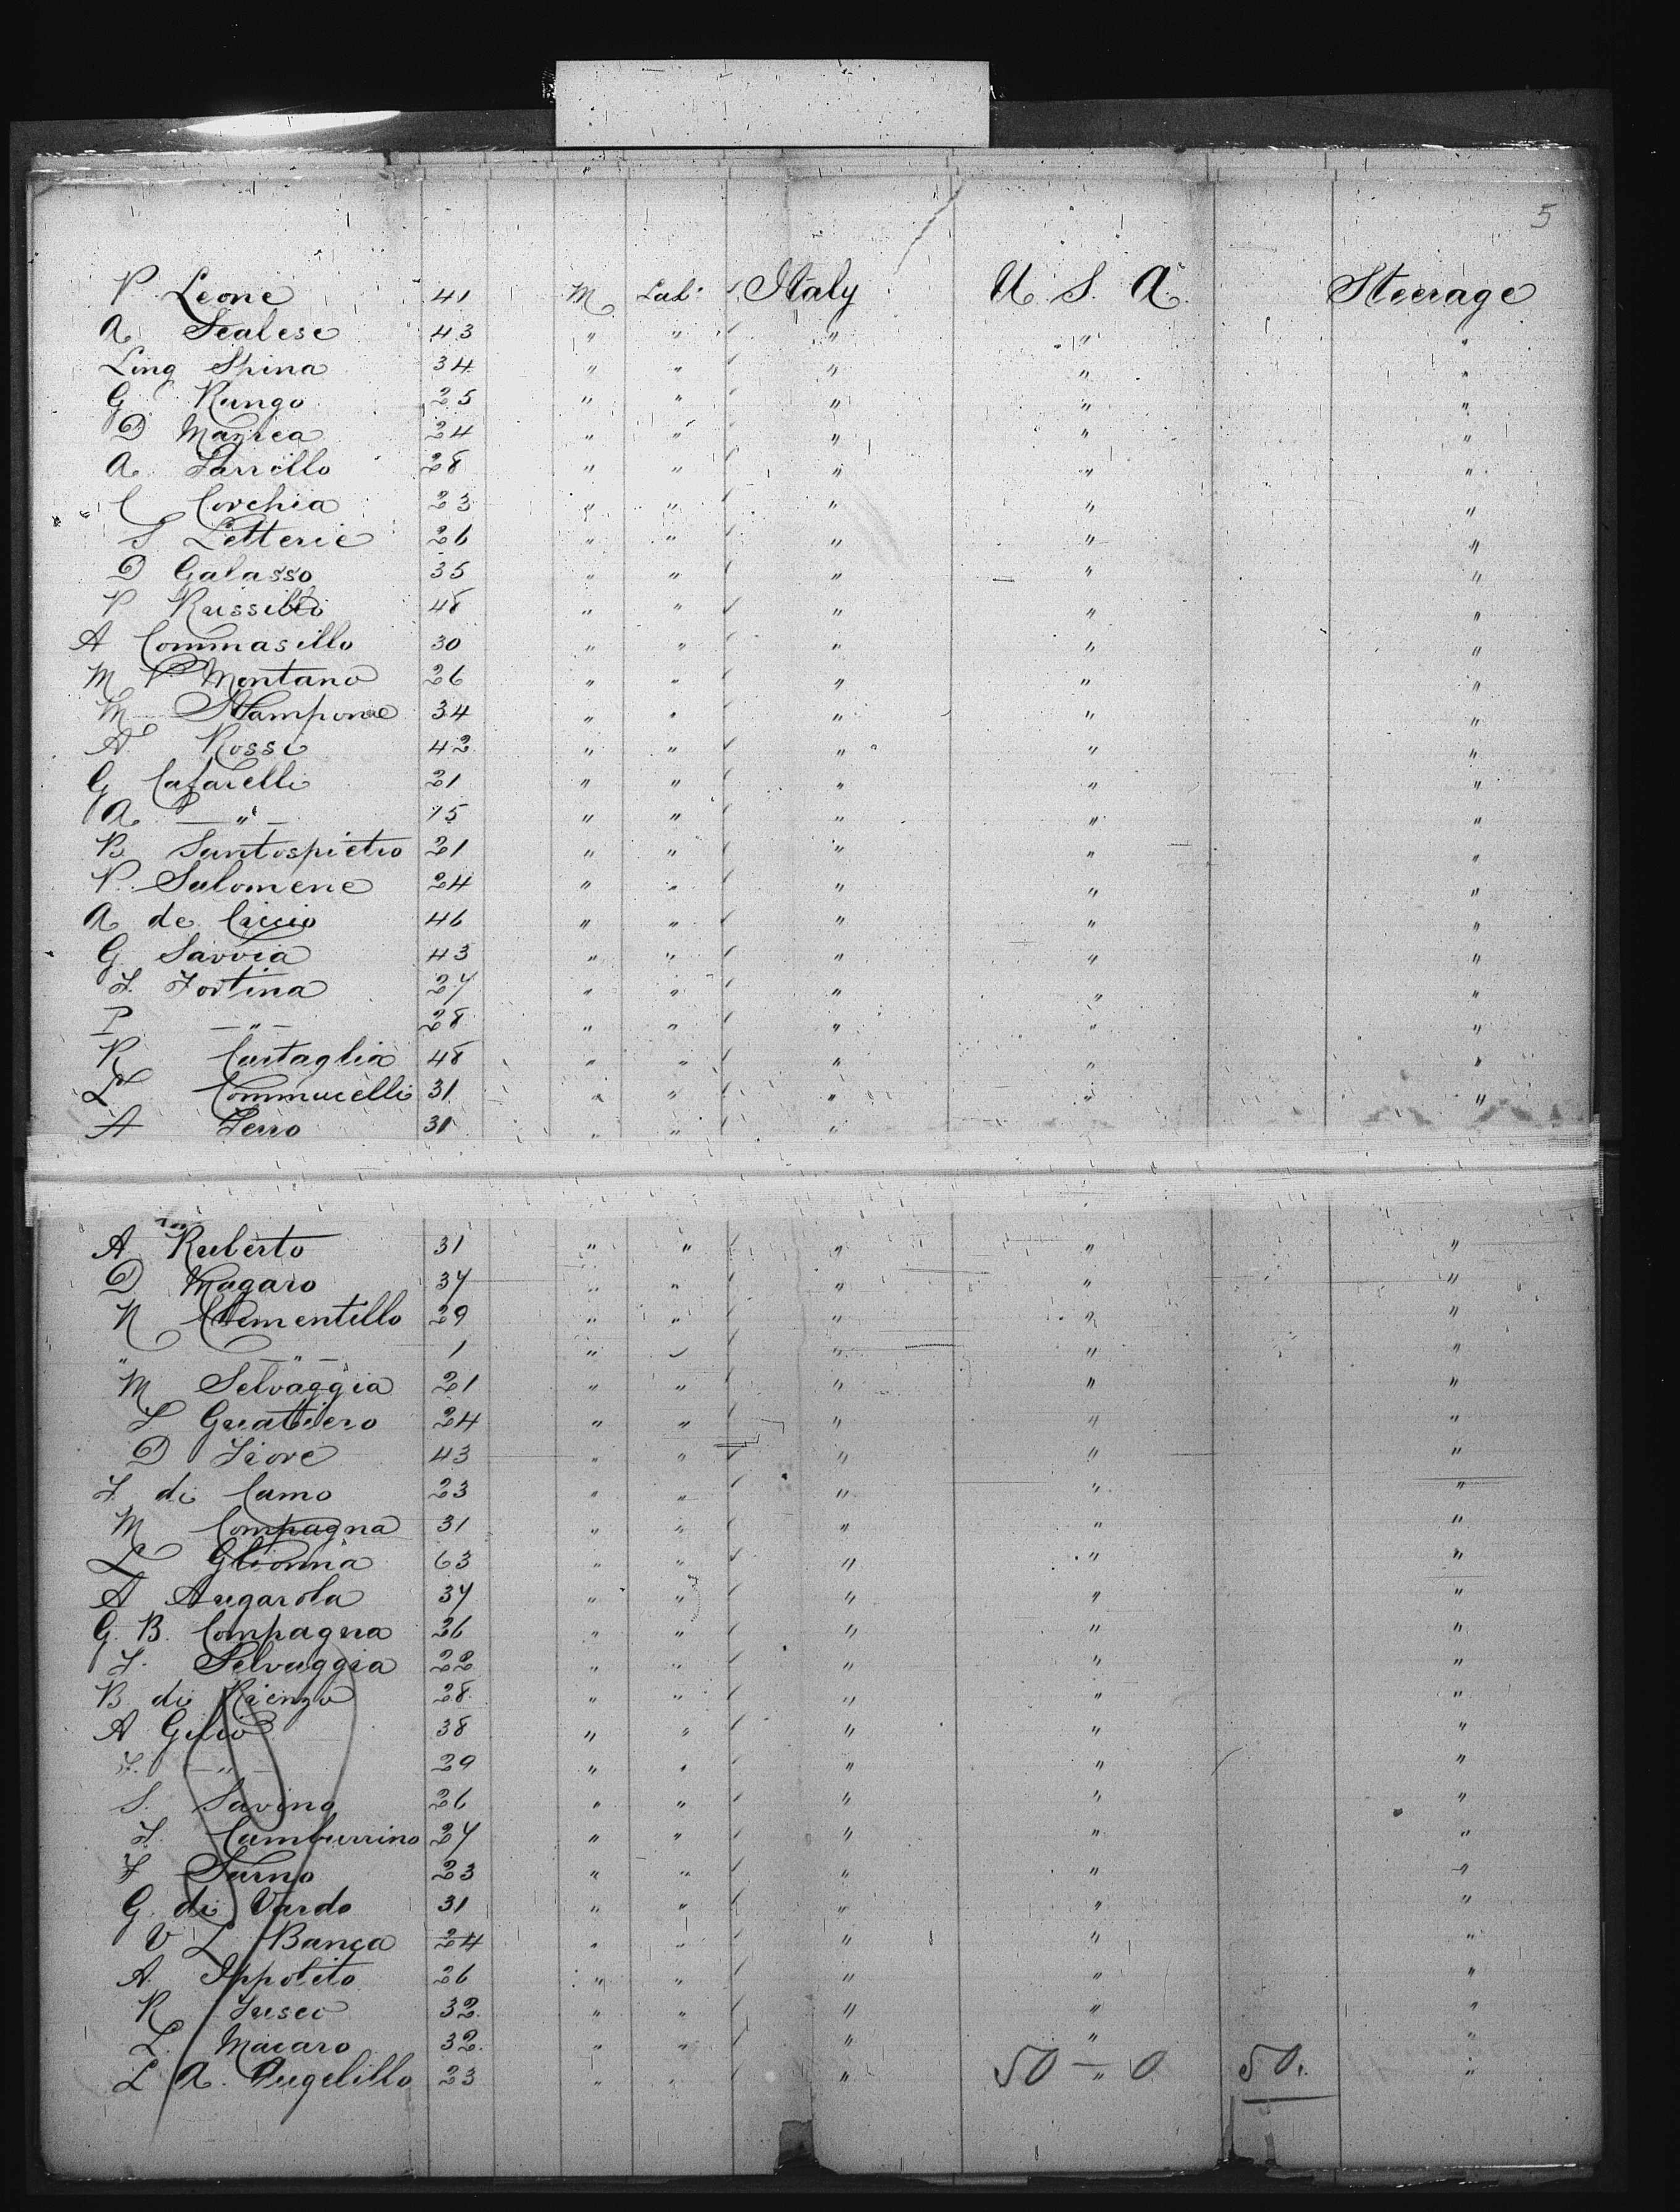 5
P. Leone 41 M Lab: ✓ Italy U. S. A. Steerage
A Scalese 43 " " ✓ " " "
Luig Spina 34 " " ✓ " " "
G Rungo 25 " " ✓ " " "
D Manica 24 " " ✓ " " "
A 28 " " ✓ " " "
C Corchia 23 " " ✓ " " "
S Letterie 26 " " ✓ " " "
D Galasso 35 " " ✓ " " "
P 48 " " ✓ " " "
A Commasillo 30 " " ✓ " " "
M P Montano 26 " " ✓ " " "
M Stampone 34 " " ✓ " " "
A Rossi 42 " " ✓ " " "
G Cafarelli 21 " " ✓ " " "
A — " — 15 " " ✓ " " "
B Santospietro 21 " " ✓ " " "
P. Salomene 24 " " ✓ " " "
A de Ciccio 46 " " ✓ " " "
G Savoia 43 " " ✓ " " "
F. Fortina 27 " " ✓ " " "
P — " — 28 " " ✓ " " "
R Castaglia 48 " " ✓ " " "
L Commucelli 31 " " ✓ " " "
A Ferro 31 " " ✓ "
A Ruberto 31 " " ✓ " " "
D Magaro 37 " " ✓ " " "
N Clementillo 29 " " ✓ " " "
" — " — 1 " ✓ " " "
M Selvaggia 21 " " ✓ " " "
L Gualtiero 24 " " ✓ " " "
D Fiore 43 " " ✓ " " "
F. di Camo 23 " " ✓ " " "
M Compagna 31 " " ✓ " " "
L Glionna 63 " " ✓ " " "
A Augarola 37 " " ✓ " " "
G. B. Compagna 26 " " ✓ " " "
F. Selvaggia 22 " " ✓ " " "
B di Rienzo 28 " " ✓ " " "
A Gilio 38 " " ✓ " " "
F. — " — 29 " " ✓ " " "
S. Savino 26 " " ✓ " " "
F. Camburrino 27 " " ✓ " " "
F Sarno 23 " " ✓ " " "
G di Vardo 31 " " ✓ " " "
V L Banca 24 " " ✓ " " "
A. Ippolito 26 " " ✓ " " "
R Fusco 32 " " ✓ " " "
L. Macaro 32 " " ✓ " " "
L A. Augelillo 23 " " ✓ " 50 — " 0 50. "